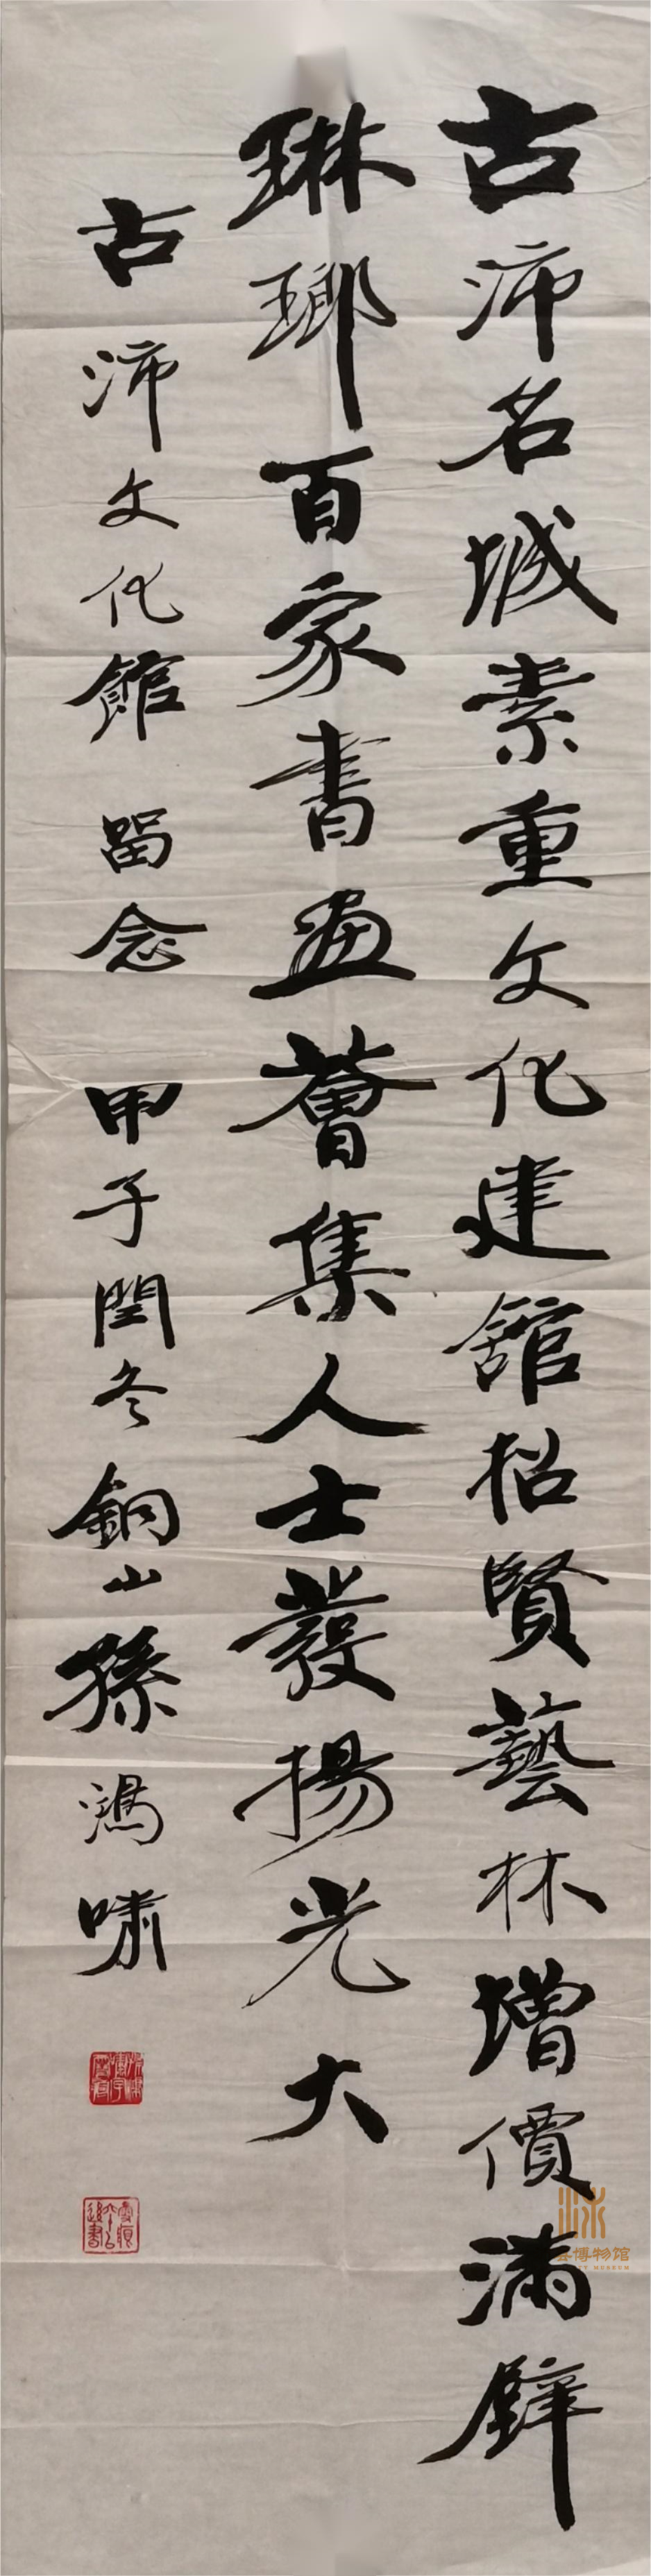 古沛名城素重文化建館招賢藝林增價滿壁
琳瑯百家書畫薈集人士發揚光大
古沛文化館 留念 甲子閏冬銅山孫鴻嘯
博物馆